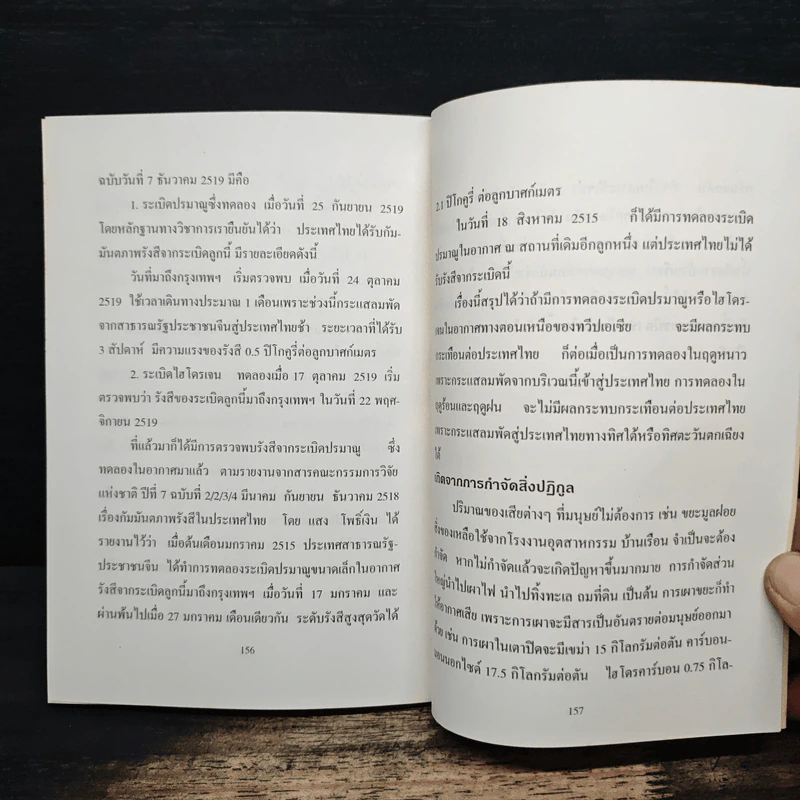 ฉบับวันที่ 7 ธันวาคม 2519 มีคือ
1. ระเบิดปรมาณูซึ่งทดลอง เมื่อวันที่ 25 กันยายน 2519
โดยหลักฐานทางวิชาการเรายืนยันได้ว่า ประเทศไทยได้รับกัม-
มันตภาพรังสีจากระเบิดลูกนี้ มีรายละเอียดดังนี้
วันที่มาถึงกรุงเทพฯ เริ่มตรวจพบ เมื่อวันที่ 24 ตุลาคม
2519 ใช้เวลาเดินทางประมาณ 1 เดือนเพราะช่วงนี้กระแสลมพัด
จากสาธารณรัฐประชาชนจีนสู่ประเทศไทยช้า ระยะเวลาที่ได้รับ
3 สัปดาห์ มีความแรงของรังสี 0.5 ปิโกคูรี่ต่อลูกบาศก์เมตร
2. ระเบิดไฮโดรเจน ทดลองเมื่อ 17 ตุลาคม 2519 เริ่ม
ตรวจพบว่า รังสีของระเบิดลูกนี้มาถึงกรุงเทพฯ ในวันที่ 22 พฤศ-
จิกายน 2519
ที่แล้วมาก็ได้มีการตรวจพบรังสีจากระเบิดปรมาณู ซึ่ง
ทดลองในอากาศมาแล้ว ตามรายงานจากสารคณะกรรมการวิจัย
แห่งชาติ ปีที่ 7 ฉบับที่ 2/2/3/4 มีนาคม กันยายน ธันวาคม 2518
เรื่องกัมมันตภาพรังสีในประเทศไทย โดย แสง โพธิ์เงิน ได้
รายงานไว้ว่า เมื่อต้นเดือนมกราคม 2515 ประเทศสาธารณรัฐ-
ประชาชนจีน ได้ทำการทดลองระเบิดปรมาณูขนาดเล็กในอากาศ
รังสีจากระเบิดลูกนี้มาถึงกรุงเทพฯ เมื่อวันที่ 17 มกราคม และ
ผ่านพ้นไปเมื่อ 27 มกราคม เดือนเดียวกัน ระดับรังสีสูงสุดวัดได้
156
2.1 ปิโกคูรี่ ต่อลูกบาศก์เมตร
ในวันที่ 18 สิงหาคม 2515 ก็ได้มีการทดลองระเบิด
ปรมาณูในอากาศ ณ สถานที่เดิมอีกลูกหนึ่ง แต่ประเทศไทยไม่ได้
รับรังสีจากระเบิดนี้
เรื่องนี้สรุปได้ว่าถ้ามีการทดลองระเบิดปรมาณูหรือไฮโดร-
เจนในอากาศทางตอนเหนือของทวีปเอเซีย จะมีผลกระทบ
กระเทือนต่อประเทศไทย ก็ต่อเมื่อเป็นการทดลองในฤดูหนาว
เพราะกระแสลมพัดจากบริเวณนี้เข้าสู่ประเทศไทย การทดลองใน
ฤดูร้อนและฤดูฝน จะไม่มีผลกระทบกระเทือนต่อประเทศไทย
เพราะกระแสลมพัดสู่ประเทศไทยทางทิศใต้หรือทิศตะวันตกเฉียง
ใต้
เกิดจากการกำจัดสิ่งปฏิกูล
ปริมาณของเสียต่างๆ ที่มนุษย์ไม่ต้องการ เช่น ขยะมูลฝอย
สิ่งของเหลือใช้จากโรงงานอุตสาหกรรม บ้านเรือน จำเป็นจะต้อง
กำจัด หากไม่กำจัดแล้วจะเกิดปัญหาขึ้นมากมาย การกำจัดส่วน
ใหญ่นำไปเผาไฟ นำไปทิ้งทะเล ถมที่ดิน เป็นต้น การเผาขยะก็ทำ
ให้อากาศเสีย เพราะการเผาจะมีสารเป็นอันตรายต่อมนุษย์ออกมา
ด้วย เช่น การเผาในเตาปิดจะมีเขม่า 15 กิโลกรัมต่อตัน คาร์บอน-
มอนนอกไซด์ 17.5 กิโลกรัมต่อตัน ไฮโดรคาร์บอน 0.75 กิโล-
157